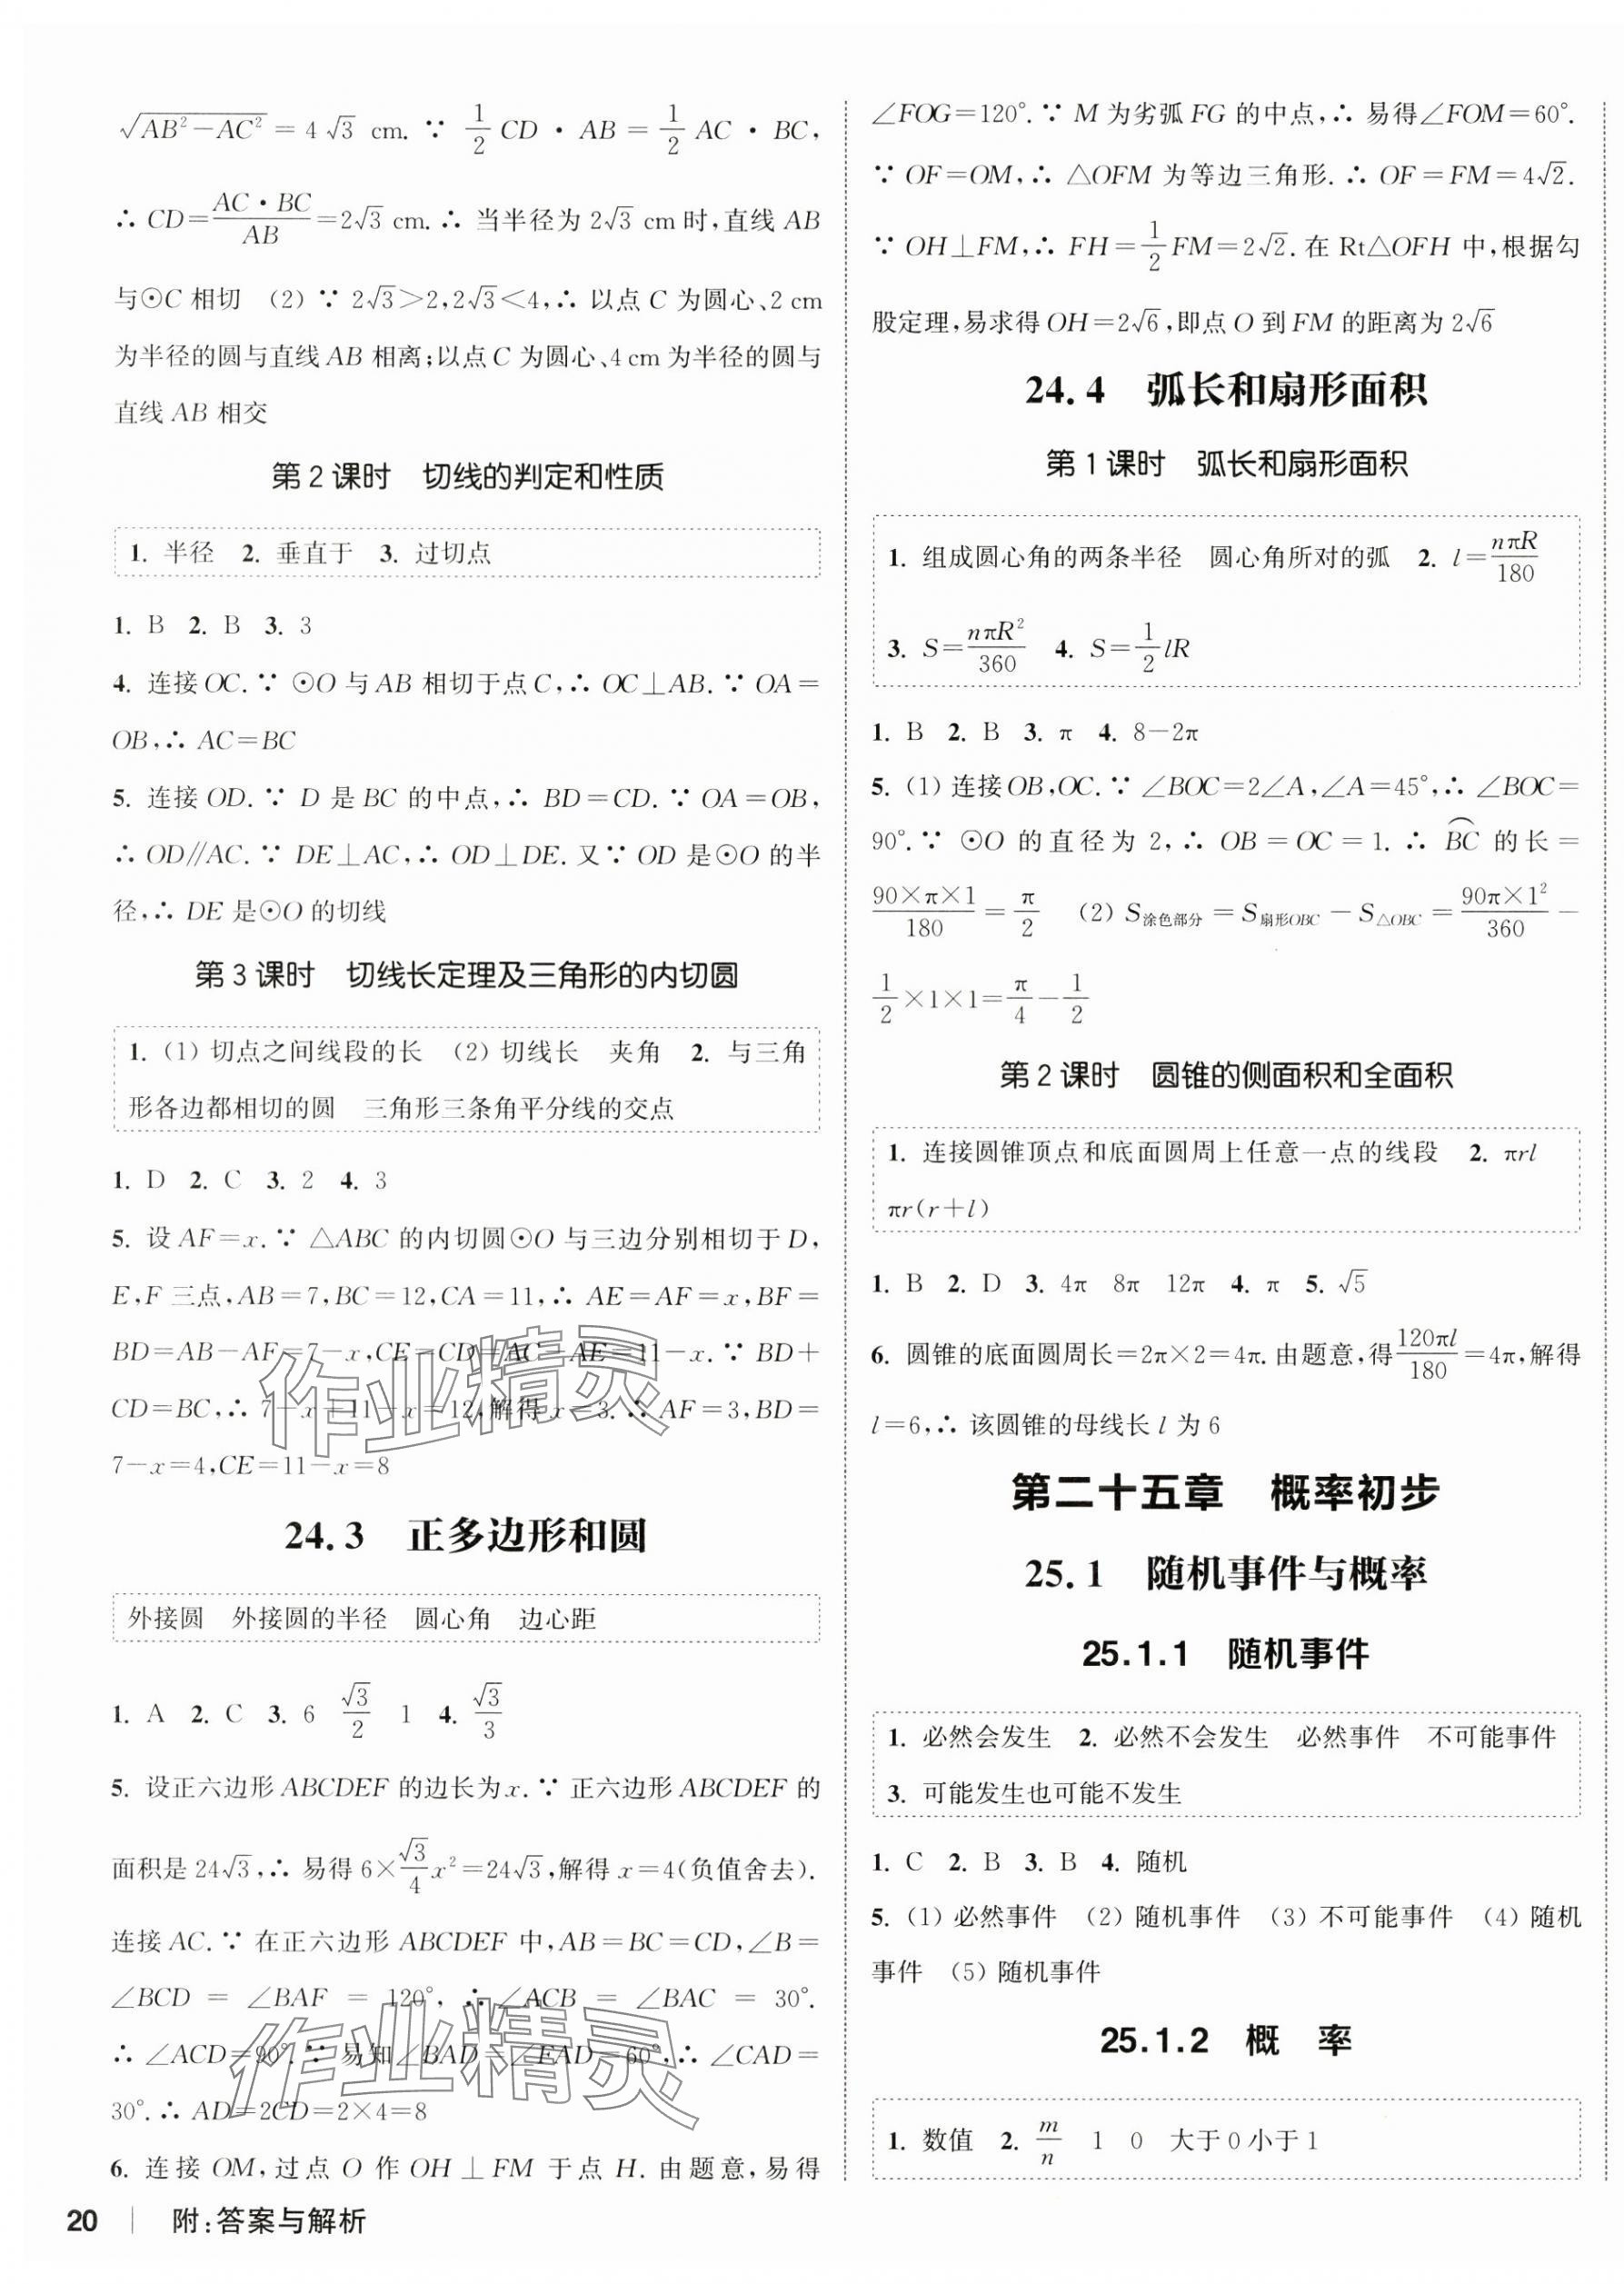 √(AB²−AC²) = 4√3 cm. ∵ 1/2 CD · AB = 1/2 AC · BC,
∴ CD = (AC · BC)/AB = 2√3 cm. ∴ 当半径为 2√3 cm 时,直线 AB
与⊙C 相切 (2) ∵ 2√3>2,2√3<4,∴ 以点 C 为圆心、2 cm
为半径的圆与直线 AB 相离;以点 C 为圆心、4 cm 为半径的圆与
直线 AB 相交
第 2 课时 切线的判定和性质
1. 半径 2. 垂直于 3. 过切点
1. B 2. B 3. 3
4. 连接 OC. ∵ ⊙O 与 AB 相切于点 C,∴ OC⊥AB. ∵ OA=
OB,∴ AC=BC
5. 连接 OD. ∵ D 是 BC 的中点,∴ BD=CD. ∵ OA=OB,
∴ OD∥AC. ∵ DE⊥AC,∴ OD⊥DE. 又∵ OD 是⊙O 的半
径,∴ DE 是⊙O 的切线
第 3 课时 切线长定理及三角形的内切圆
1. (1) 切点之间线段的长 (2) 切线长 夹角 2. 与三角
形各边都相切的圆 三角形三条角平分线的交点
1. D 2. C 3. 2 4. 3
5. 设 AF=x. ∵ △ABC 的内切圆⊙O 与三边分别相切于 D,
E,F 三点,AB=7,BC=12,CA=11,∴ AE=AF=x,BF=
BD=AB−AF=7−x,CE=CD=AC−AE=11−x. ∵ BD+
CD=BC,∴ 7−x+11−x=12,解得 x=3. ∴ AF=3,BD=
7−x=4,CE=11−x=8
24.3 正多边形和圆
外接圆 外接圆的半径 圆心角 边心距
1. A 2. C 3. 6 √3/2 1 4. √3/3
5. 设正六边形 ABCDEF 的边长为 x. ∵ 正六边形 ABCDEF 的
面积是 24√3,∴ 易得 6×(√3/4)x²=24√3,解得 x=4(负值舍去).
连接 AC. ∵ 在正六边形 ABCDEF 中,AB=BC=CD,∠B=
∠BCD = ∠BAF = 120°, ∴ ∠ACB = ∠BAC = 30°.
∴ ∠ACD=90°. ∵ 易知∠BAD=∠FAD=60°,∴ ∠CAD=
30°. ∴ AD=2CD=2×4=8
6. 连接 OM,过点 O 作 OH⊥FM 于点 H. 由题意,易得
20 附:答案与解析
∠FOG=120°. ∵ M 为劣弧 FG 的中点,∴ 易得∠FOM=60°.
∵ OF=OM,∴ △OFM 为等边三角形. ∴ OF=FM=4√2.
∵ OH⊥FM,∴ FH=1/2 FM=2√2. 在 Rt△OFH 中,根据勾
股定理,易求得 OH=2√6,即点 O 到 FM 的距离为 2√6
24.4 弧长和扇形面积
第 1 课时 弧长和扇形面积
1. 组成圆心角的两条半径 圆心角所对的弧 2. l=nπR/180
3. S=nπR²/360 4. S=1/2 lR
1. B 2. B 3. π 4. 8−2π
5. (1) 连接 OB,OC. ∵ ∠BOC=2∠A,∠A=45°,∴ ∠BOC=
90°. ∵ ⊙O 的直径为 2,∴ OB=OC=1. ∴ B͡C 的长=
(90×π×1)/180=π/2 (2) S涂色部分=S扇形OBC−S△OBC=(90π×1²)/360−
1/2×1×1=π/4−1/2
第 2 课时 圆锥的侧面积和全面积
1. 连接圆锥顶点和底面圆周上任意一点的线段 2. πrl
πr(r+l)
1. B 2. D 3. 4π 8π 12π 4. π 5. √5
6. 圆锥的底面圆周长=2π×2=4π. 由题意,得 120πl/180=4π,解得
l=6,∴ 该圆锥的母线长 l 为 6
第二十五章 概率初步
25.1 随机事件与概率
25.1.1 随机事件
1. 必然会发生 2. 必然不会发生 必然事件 不可能事件
3. 可能发生也可能不发生
1. C 2. B 3. B 4. 随机
5. (1) 必然事件 (2) 随机事件 (3) 不可能事件 (4) 随机
事件 (5) 随机事件
25.1.2 概 率
1. 数值 2. m/n 1 0 大于 0 小于 1
作业精灵
作业精灵